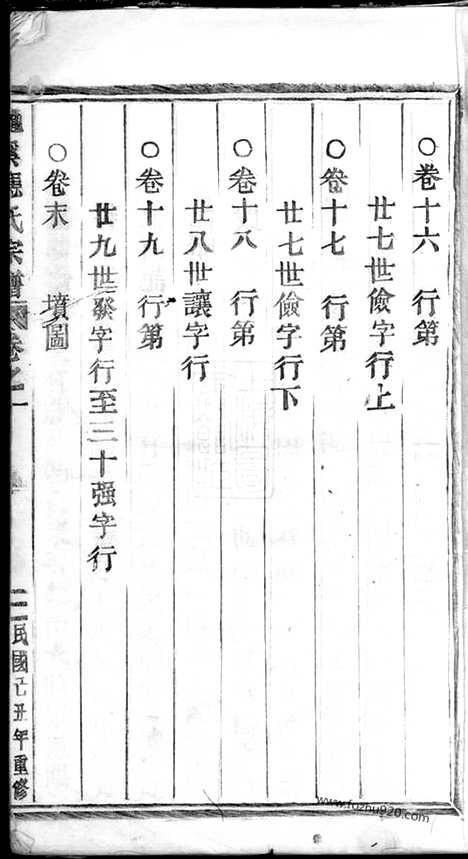 ○卷十六 行第
廿七世儉字行上
○卷十七 行第
廿七世儉字行下
○卷十八 行第
廿八世讓字行
○卷十九 行第
廿九世發字行至三十强字行
○卷末 墳圖
氏宗譜 卷之一
二 民國己丑年重修
www.fuzhu920.com